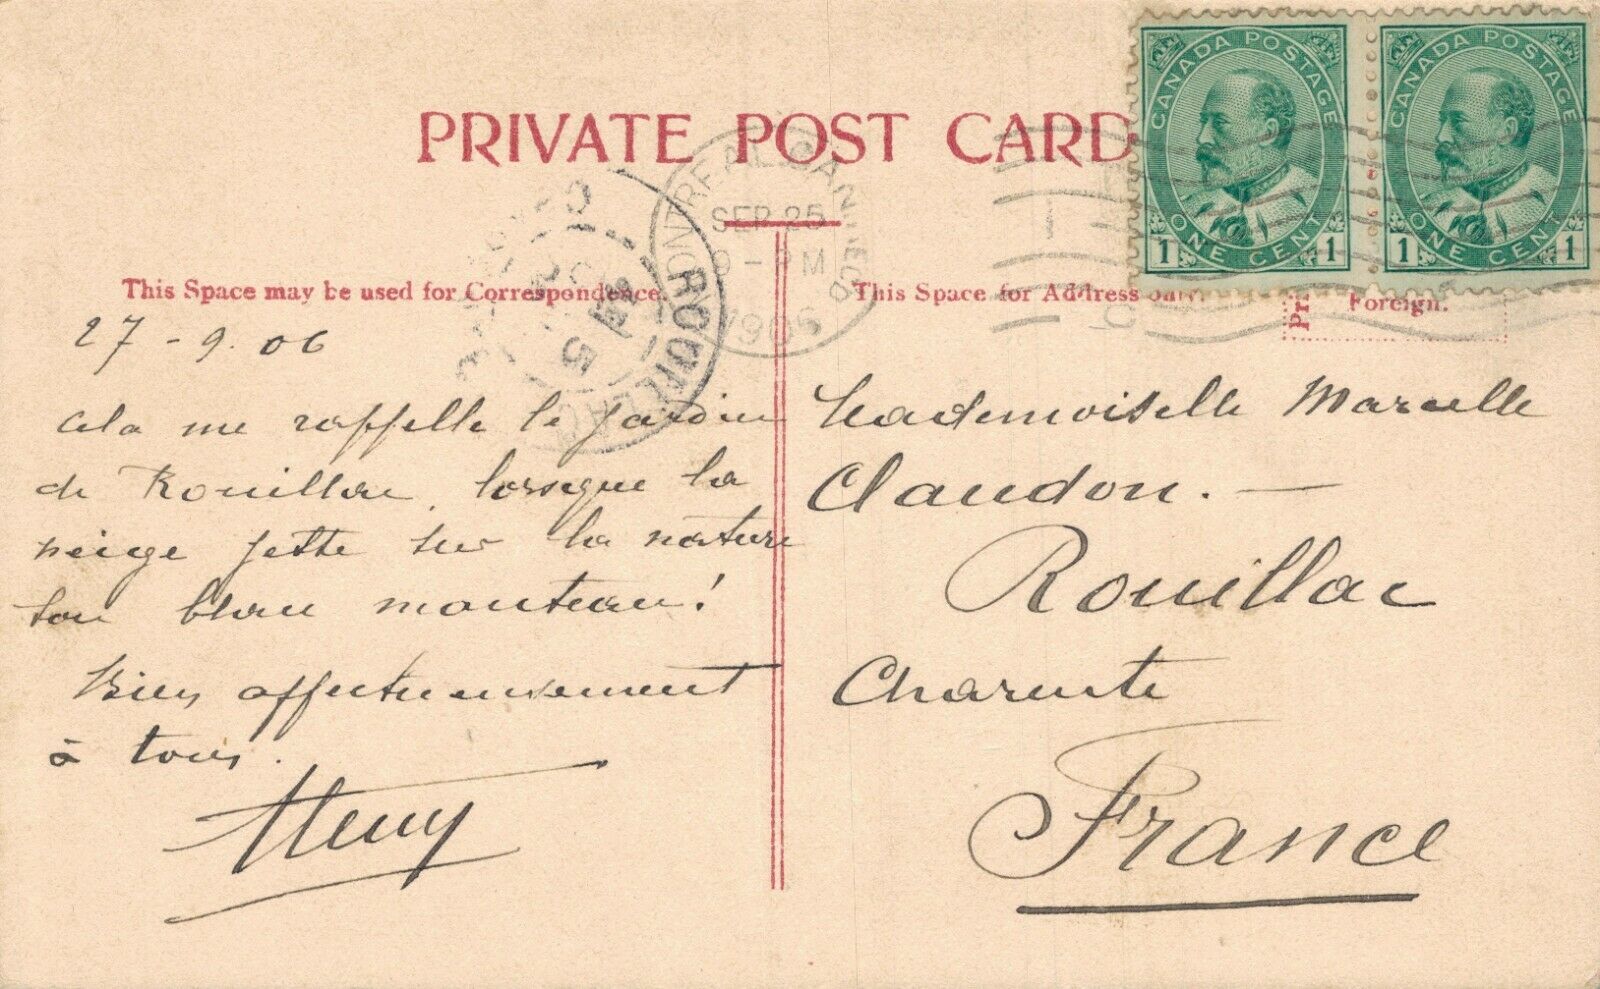 PRIVATE POST CARD
CANADA POSTAGE
ONE CENT
1 1
CANADA POSTAGE
ONE CENT
1 1
MONTREAL, CAN.
SEP 25
PM
1906
ROUILLAC
5
This Space may be used for Correspondence.
27 - 9. 06
Cela me rappelle le jardin
de Rouillac, lorsque la
neige jette sur la nature
son blanc manteau!
Bien affectueusement
à tous.
Henry
This Space for Address only.
Foreign.
Mademoiselle Marcelle
Claudon. —
Rouillac
Charente
France